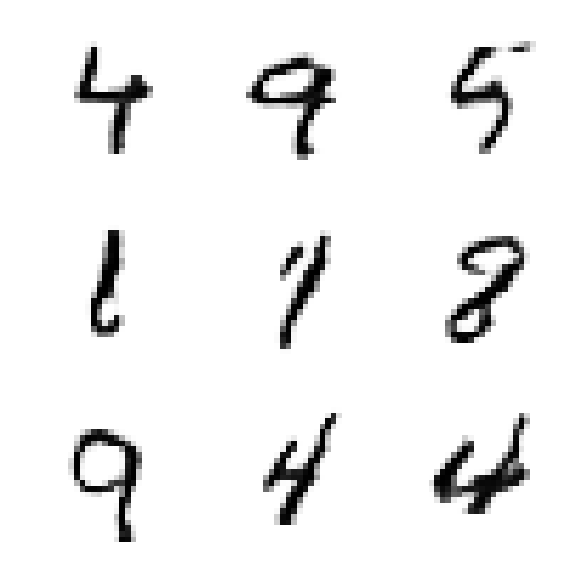 4 9 5
1 1 8
9 4 4